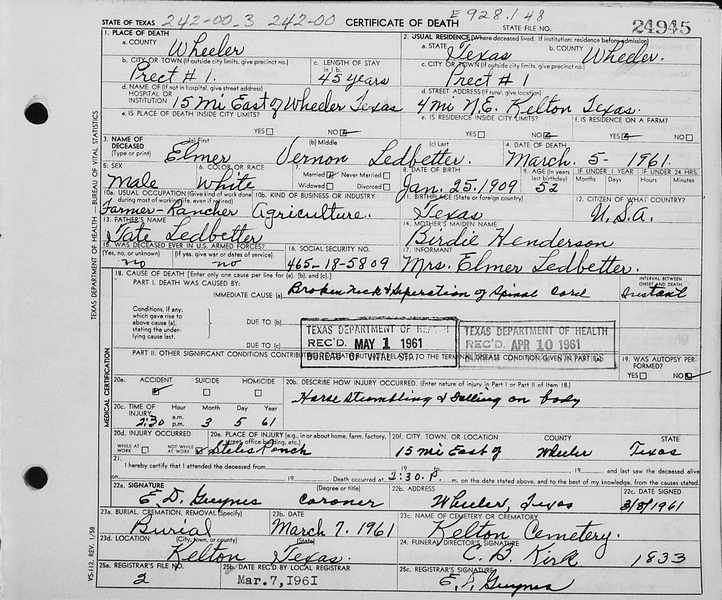 STATE OF TEXAS 242-00-3 242-00 CERTIFICATE OF DEATH E928.1 48 STATE FILE NO. 24945
1. PLACE OF DEATH
a. COUNTY Wheeler
2. USUAL RESIDENCE (Where deceased lived. If institution: residence before admission)
a. STATE Texas b. COUNTY Wheeler.
b. CITY OR TOWN (If outside city limits, give precinct no.) Prect #1.
c. LENGTH OF STAY in 1 b. 45 years
c. CITY OR TOWN (If outside city limits, give precinct no.) Prect #1
d. NAME OF (If not in hospital, give street address) HOSPITAL OR INSTITUTION 15 Mi East of Wheeler Texas
d. STREET ADDRESS (If rural, give location) 4 mi N.E. Kelton Texas.
e. IS PLACE OF DEATH INSIDE CITY LIMITS? YES NO
e. IS RESIDENCE INSIDE CITY LIMITS? YES NO
f. IS RESIDENCE ON A FARM? YES NO
3. NAME OF DECEASED (Type or print)
(a) First Elmer
(b) Middle Vernon
(c) Last Ledbetter.
4. DATE OF DEATH March. 5- 1961.
5. SEX Male
6. COLOR OR RACE White
7. Married Never Married
Widowed Divorced
8. DATE OF BIRTH Jan. 25. 1909
9. AGE (In years last birthday) 52
IF UNDER 1 YEAR Months Days
IF UNDER 24 HRS. Hours Min.
10a. USUAL OCCUPATION (Give kind of work done during most of working life, even if retired) Farmer-Rancher
10b. KIND OF BUSINESS OR INDUSTRY Agriculture.
11. BIRTHPLACE (State or foreign country) Texas
12. CITIZEN OF WHAT COUNTRY? U.S.A.
13. FATHER'S NAME Tate Ledbetter
14. MOTHER'S MAIDEN NAME Birdie Henderson
15. WAS DECEASED EVER IN U.S. ARMED FORCES?
(Yes, no, or unknown) no (If yes, give war or dates of service) no
16. SOCIAL SECURITY NO. 465-18-5809
17. INFORMANT Mrs. Elmer Ledbetter.
18. CAUSE OF DEATH [Enter only one cause per line for (a), (b), and (c).]
INTERVAL BETWEEN ONSET AND DEATH
PART I. DEATH WAS CAUSED BY:
IMMEDIATE CAUSE (a) Broken Neck & Seperation of Spinal Cord Instant
Conditions, if any, which gave rise to above cause (a), stating the underlying cause last.
DUE TO (b)
DUE TO (c)
TEXAS DEPARTMENT OF HEALTH
REC'D MAY 1 1961
BUREAU OF VITAL STA.
TEXAS DEPARTMENT OF HEALTH
REC'D. APR 10 1961
BUREAU OF VITAL STATISTICS
PART II. OTHER SIGNIFICANT CONDITIONS CONTRIBUTING TO DEATH BUT NOT RELATED TO THE TERMINAL DISEASE CONDITION GIVEN IN PART I(a)
19. WAS AUTOPSY PERFORMED? YES NO
20a. ACCIDENT SUICIDE HOMICIDE
20b. DESCRIBE HOW INJURY OCCURRED. (Enter nature of injury in Part I or Part II of Item 18.)
Horse Stumbling & Falling on body
20c. TIME OF INJURY Hour Month Day Year
2:30 a.m. p.m. 3 5 61
20d. INJURY OCCURRED WHILE AT WORK NOT WHILE AT WORK
20e. PLACE OF INJURY (e.g., in or about home, farm, factory, street, office building, etc.) Ranch
20f. CITY, TOWN, OR LOCATION COUNTY STATE
15 mi East of Wheeler Texas
21. I hereby certify that I attended the deceased from 19 to 19 and last saw the deceased alive
on 19 Death occurred at 2:30. P. m. on the date stated above, and to the best of my knowledge, from the causes stated.
22a. SIGNATURE (Degree or title) E. D. Guynes Coroner
22b. ADDRESS Wheeler, Texas
22c. DATE SIGNED 3/8/1961
23a. BURIAL, CREMATION, REMOVAL (Specify) Burial
23b. DATE March 7. 1961
23c. NAME OF CEMETERY OR CREMATORY Kelton Cemetery.
23d. LOCATION (City, town, or county) (State) Kelton Texas.
24. FUNERAL DIRECTOR'S SIGNATURE C. B. Kirk 1833
25a. REGISTRAR'S FILE NO. 2
25b. DATE REC'D BY LOCAL REGISTRAR Mar. 7, 1961
25c. REGISTRAR'S SIGNATURE E. D. Guynes
TEXAS DEPARTMENT OF HEALTH — BUREAU OF VITAL STATISTICS
MEDICAL CERTIFICATION
VS-112, REV. 1/58